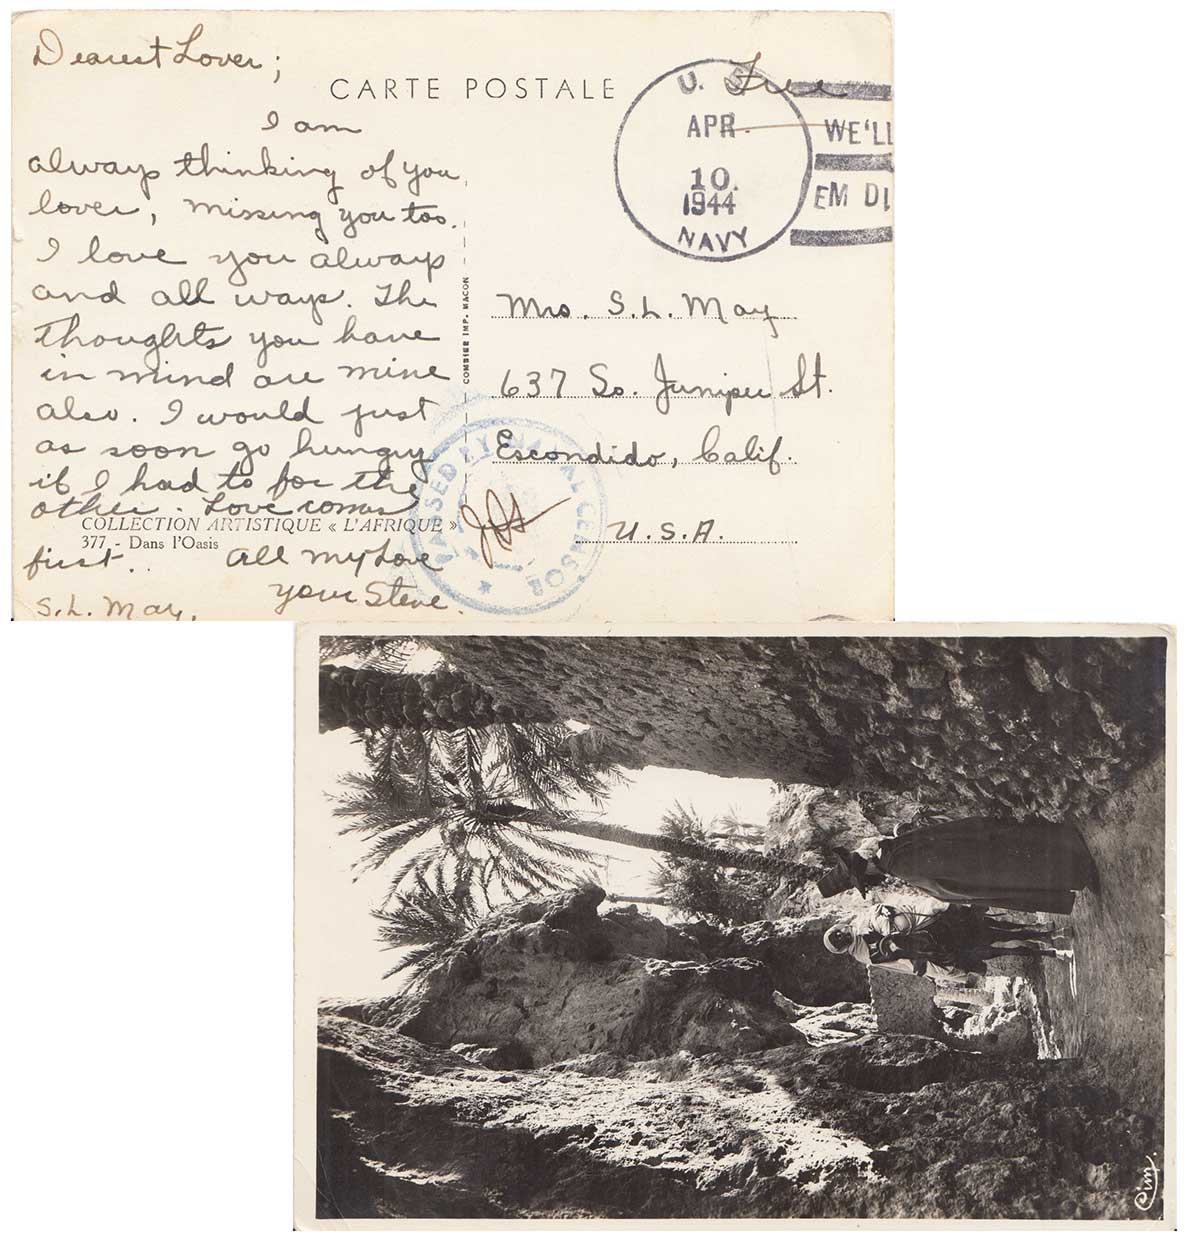 Dearest Lover;
I am
always thinking of you
lover, missing you too.
I love you always
and all ways. The
thoughts you have
in mind are mine
also. I would just
as soon go hungry
if I had to for the
other. Love comes
first.. All my Love
your Steve.
S.L. May,
CARTE POSTALE
COLLECTION ARTISTIQUE « L'AFRIQUE »
377 - Dans l'Oasis
COMBIER IMP. MACON
Free
U. S.
APR.
10.
1944
NAVY
WE'LL
EM DI
Mrs. S.L. May
637 So. Juniper St.
Escondido, Calif.
U.S.A.
PASSED BY NAVAL CENSOR
Cim.